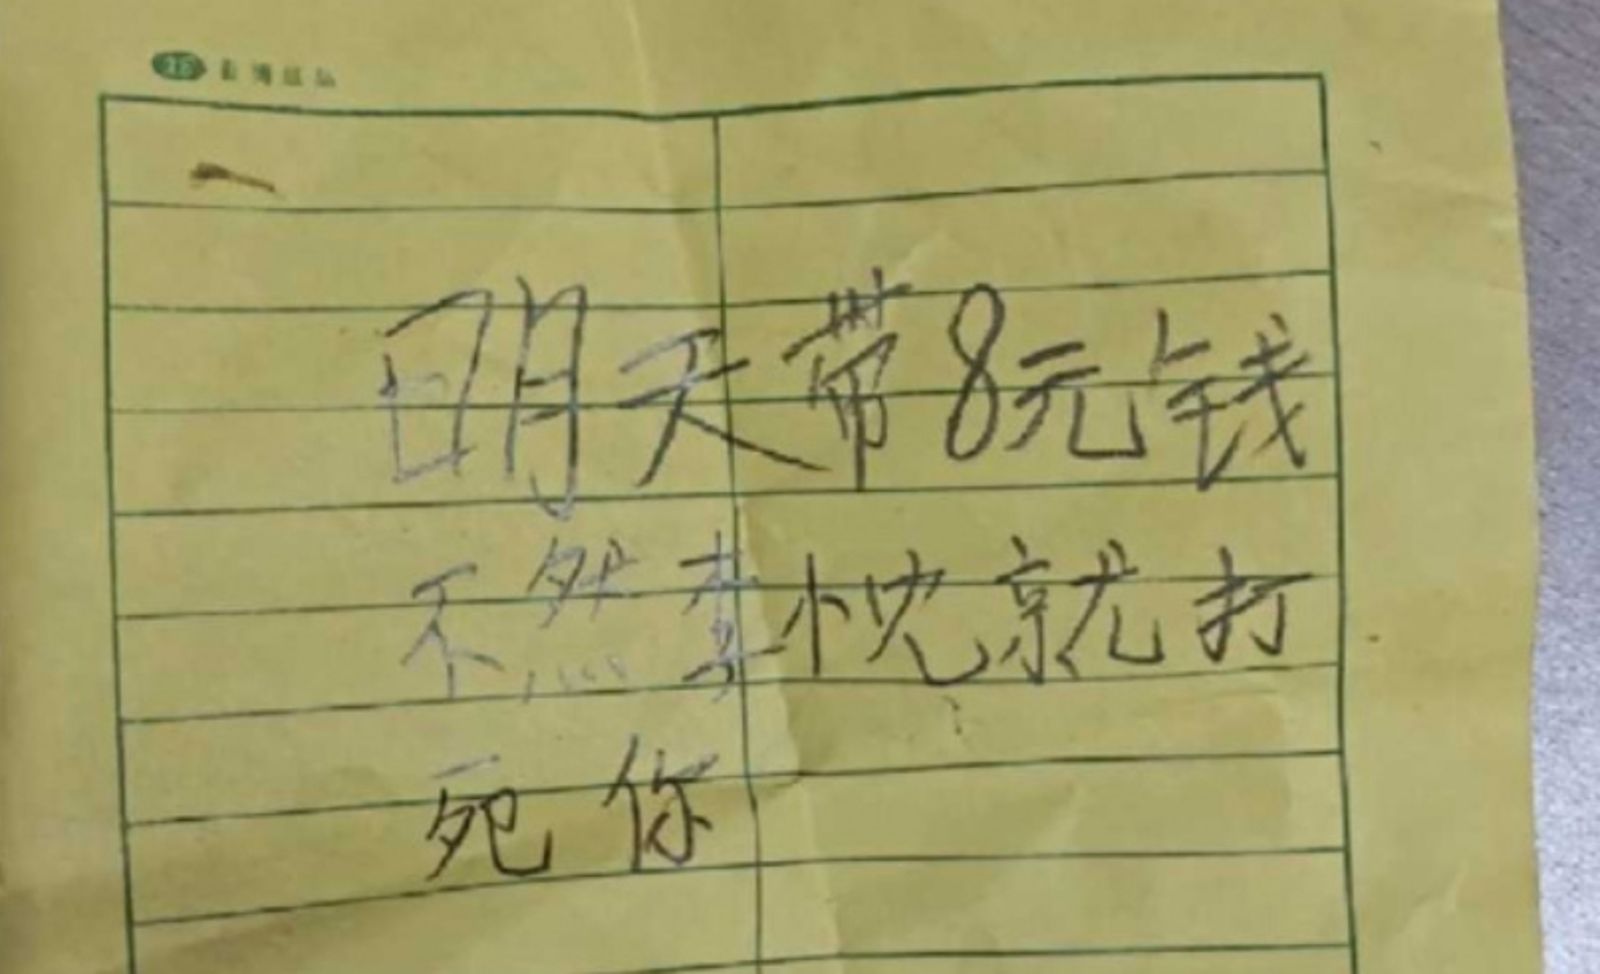 明天带8元钱
不然李悦就打
死你